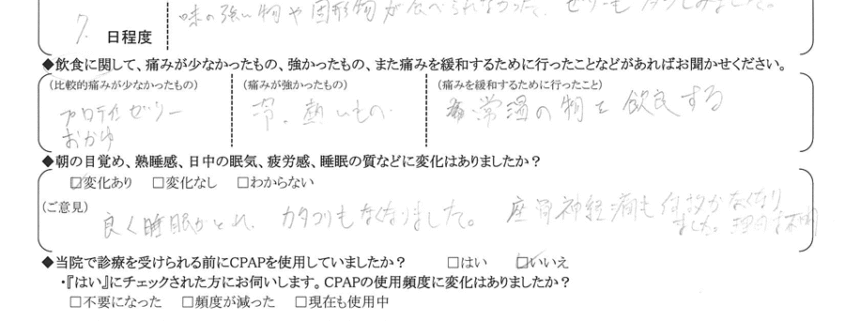 味の強い物や固形物が食べられなかった。ゼリーも
7. 日程度
◆飲食に関して、痛みが少なかったもの、強かったもの、また痛みを緩和するために行ったことなどがあればお聞かせください。
(比較的痛みが少なかったもの) (痛みが強かったもの) (痛みを緩和するために行ったこと)
プロテインゼリー 冷、熱いもの 常温の物を飲食する
おかゆ
◆朝の目覚め、熟睡感、日中の眠気、疲労感、睡眠の質などに変化はありましたか?
☑変化あり □変化なし □わからない
(ご意見)
良く睡眠がとれ、カタコリもなくなりました。座骨神経痛も何故かなくなり
ました。理由は不明
◆当院で診療を受けられる前にCPAPを使用していましたか? □はい ☑いいえ
・『はい』にチェックされた方にお伺いします。CPAPの使用頻度に変化はありましたか?
□不要になった □頻度が減った □現在も使用中